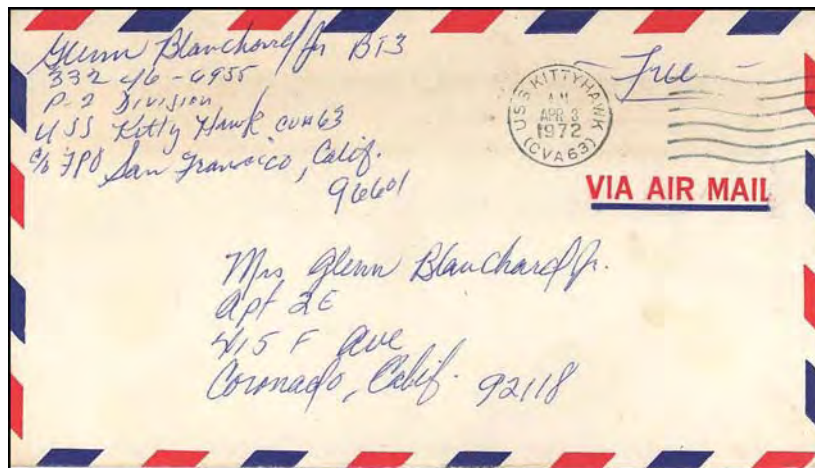 Glenn Blanchard Jr BT3
332 46-6955
P-2 Division
USS Kitty Hawk CVA63
c/o FPO San Francisco, Calif.
96601
- Free -
USS KITTYHAWK
A.M.
APR 3
1972
(CVA63)
VIA AIR MAIL
Mrs Glenn Blanchard Jr.
Apt 2E
415 F Ave
Coronado, Calif. 92118